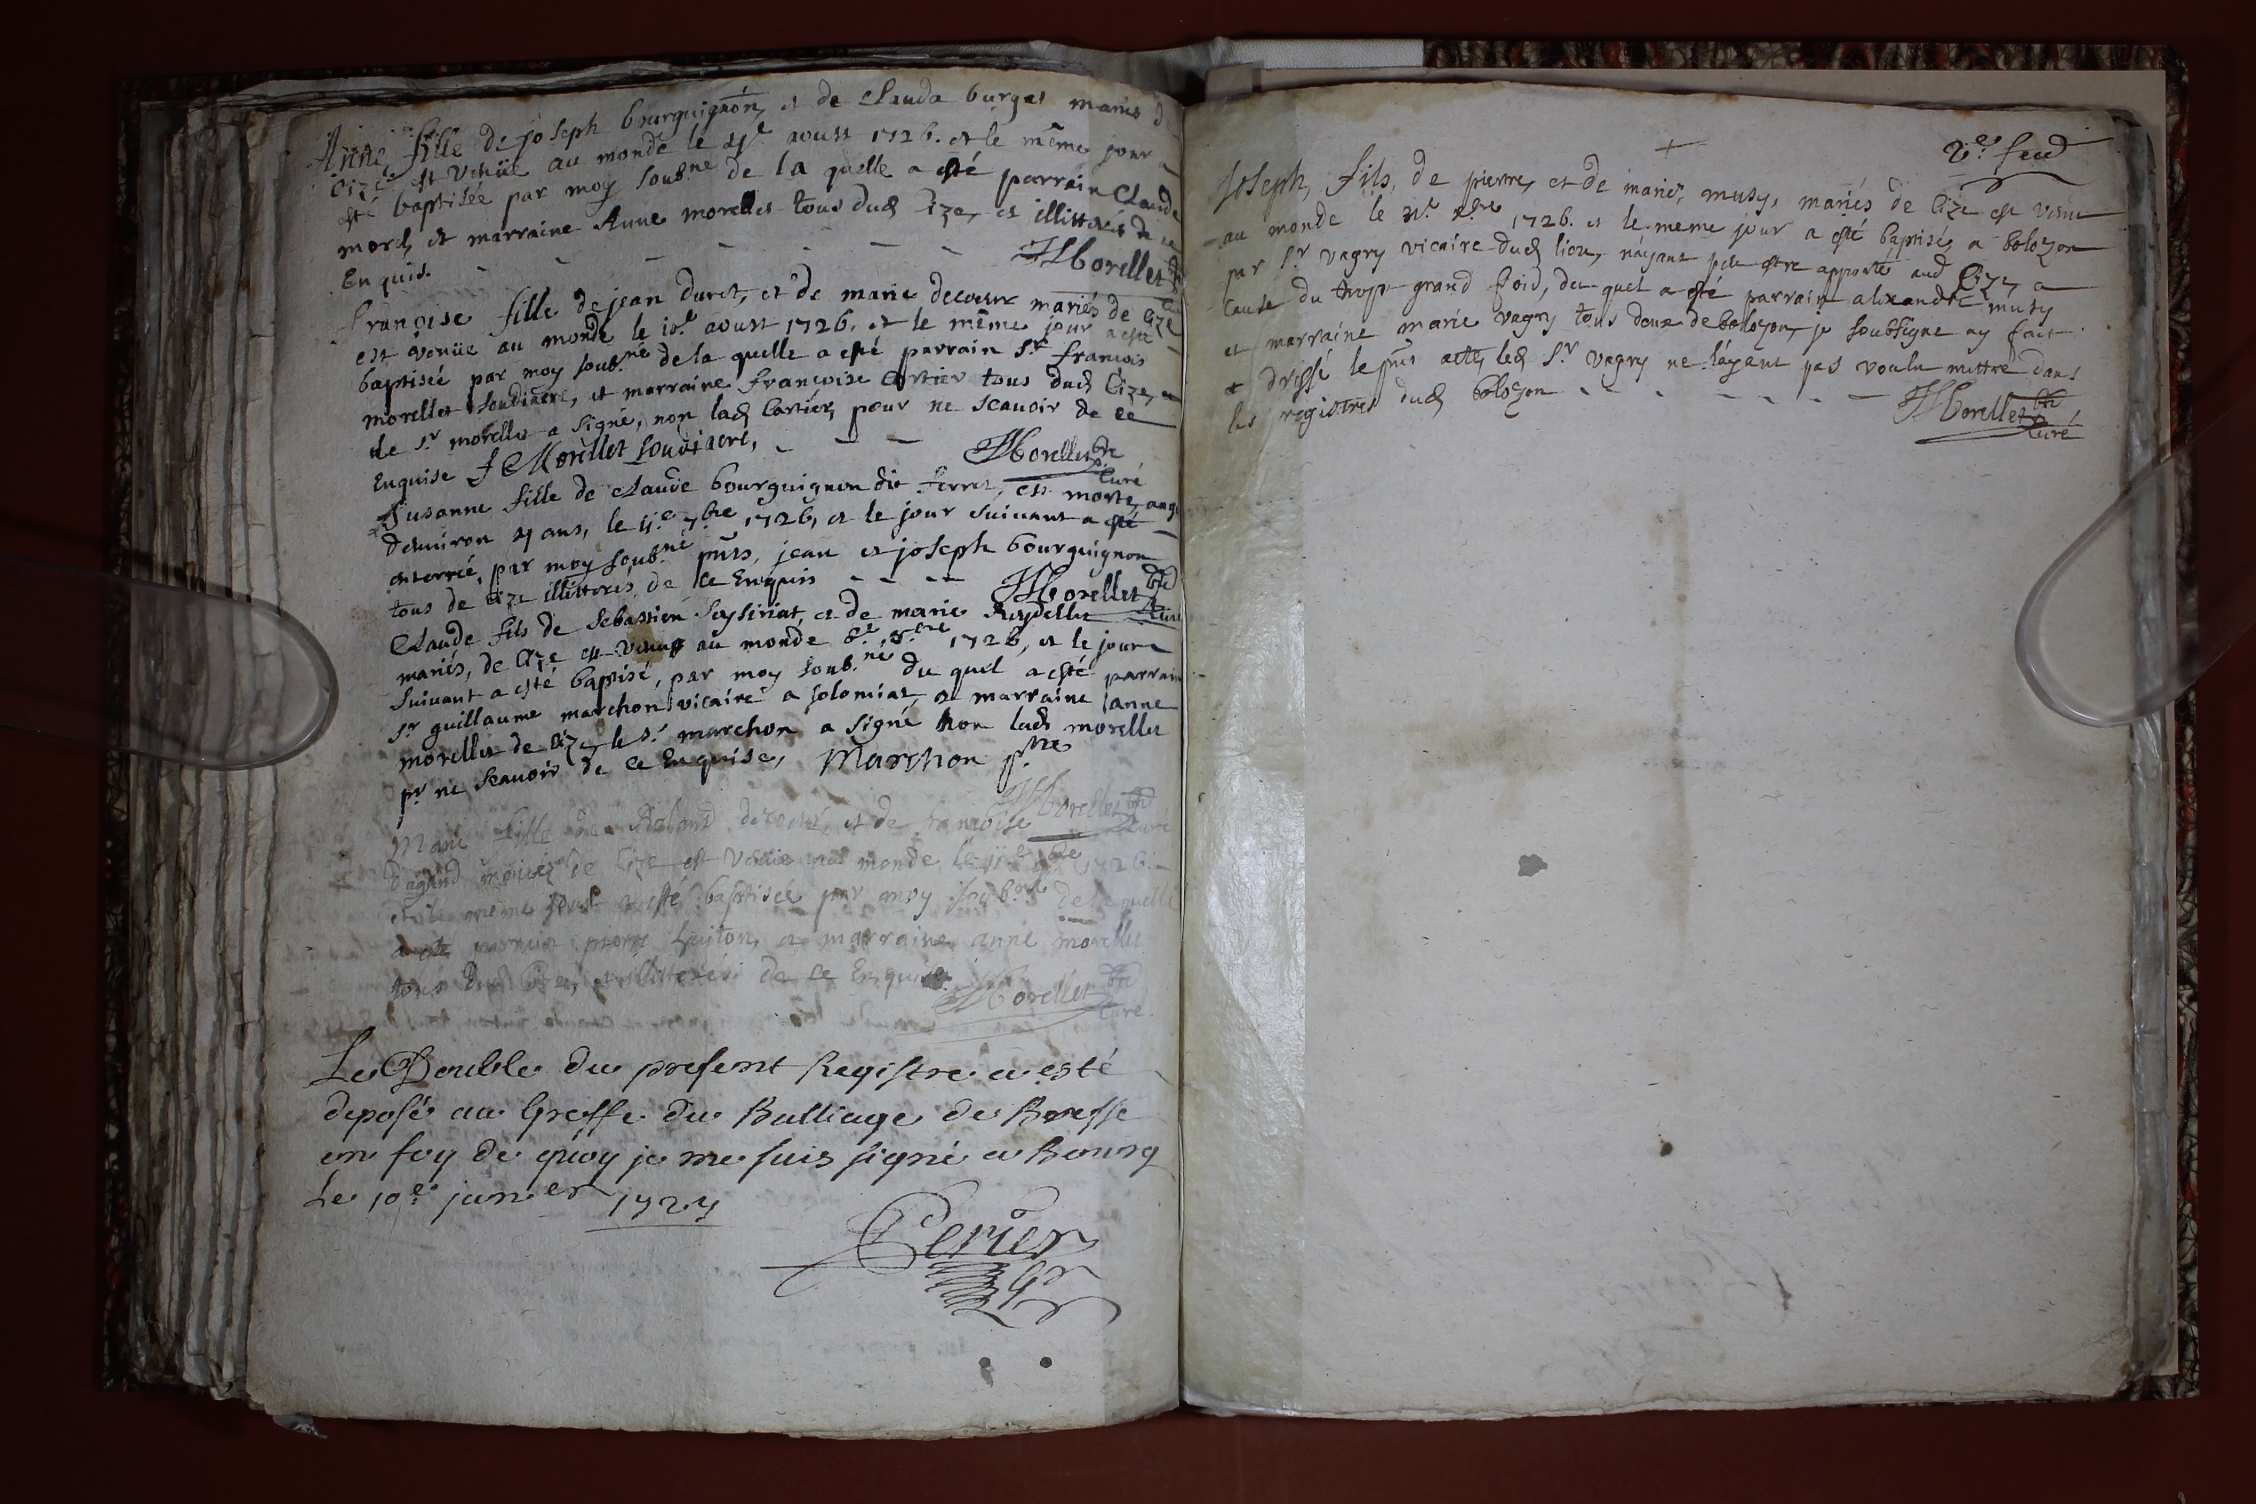 Anne, fille de joseph bourguignon, et de Clauda burges mariés d
Cize est venüe au monde le 4.e aoust 1726. et le même jour a
esté baptisée par moy soub.né de la quelle a esté parrain Claude
morel, et marraine Anne morellet tous dud Cize, et illitterés de ce
Enquis.
Morellet
françoise fille de jean duret, et de marie decoeur mariés de Cize
est venüe au monde le 10.e aoust 1726, et le même jour a esté
baptisée par moy soub.né de la quelle a esté parrain S.r francois
morellet Soudiacre, et marraine francoise Cartier tous dud Cize,
le S.r morellet a signé, non lad Cartier, pour ne scavoir de ce
Enquise J Morellet Soudiacre,
Morellet ptre Curé
Susanne fille de Claude bourguignon dit ferret, est morte, aagé
d'enuiron 4 ans, le 11.e 7.bre 1726, et le jour suivant a esté
enterrée, par moy soub.né pñts, jean et joseph bourguignon
tous de Cize illitterés, de ce Enquis
Morellet ptre Curé
Claude fils de Sebastien Seysiriat, et de marie Reydellet
mariés, de Cize est venus au monde 8.e 8.bre 1726, et le jour
suivant a esté baptisé, par moy soub.né du quel a esté parrain
S.r guillaume marchon vicaire a solomiat, et marraine janne
morellet de Cize, le S.r marchon a signé non lad morellet
p.r ne scauoir de ce Enquise, Marchon p.tre
Morellet ptre Curé
Marie fille de Roland decoeur, et de francoise
mariés de Cize est venüe au monde le 11.e bre 1726.
et le même jour a esté baptisée par moy soub.né de la quelle
a esté parrain pierre guiton, et marraine anne morellet
tous dud Cize, et illitterés de ce Enquis.
Morellet ptre Curé.
Le Double du present Registre a esté
deposé au Greffe du Balliage de Bresse
en foy de quoy je me suis signé a Bourg
Le 10.e janv.er 1727
Perier
Gr
2.e feul
Joseph, fils, de pierre, et de marie, musy, mariés de Cize est venu
au monde le 31.e x.bre 1726. et le meme jour a esté baptisé, a bolozon
par S.r vagny vicaire dud lieu, n'ayant peu estre apporté aud Cize, a
cause du trop grand froid, du quel a esté parrain alexandre musy
et marraine marie vagny tous deux de bolozon, je soubsigne ay fait
et dressé le pñt acte, led S.r vagny ne l'ayant pas voulu mettre dans
les registres dud bolozon
Morellet ptre Curé